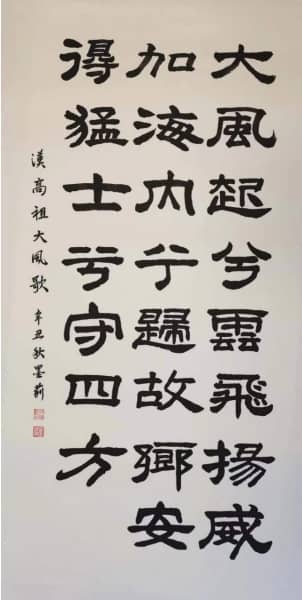 大風起兮雲飛揚威
加海内兮歸故鄉安
得猛士兮守四方
漢高祖大風歌 辛丑秋墨莉